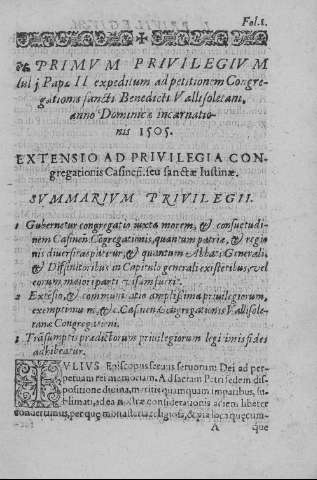 Fol. 1.
PRIMVM PRIVILEGIVM
Iulij Papæ II expeditum ad petitionem Congre-
gationis sancti Benedicti Vallisoletani,
anno Dominicæ incarnatio-
nis 1505.
EXTENSIO AD PRIVILEGIA CON-
gregationis Casineñ. seu sanctæ Iustinæ.
SVMMARIVM PRIVILEGII.
1 Gubernetur congregatio iuxta morem, & consuetudi-
nem Casineñ. Cōgregationis, quantum patriæ, & regio
nis diuersitas patitur, & quantum Abbati Generali,
& Diffinitoribus in Capitulo generali existētibus, vel
eorum maiori parti visum fuerit.
2 Extēsio, & communicatio amplissima priuilegiorum,
exemptionum, &c. Casineñ. Congregationis Vallisole-
tanæ Congregationi.
3 Trāsumptis prædictorum priuilegiorum legitimis fides
adhibeatur.
IVLIVS Episcopus seruus seruorum Dei ad per-
petuam rei memoriam. Ad sacram Petri sedem dis-
positione diuina, meritis quamquam imparibus, su-
blimati, ad ea nostræ considerationis aciem libenter
conuertimus, per quę monasteria religiosa, & pia loca quęcum-
A que